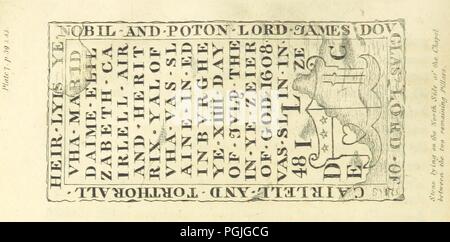 Plate 7. p. 39 & 43.
HEIR LYIS YE
NOBIL AND POTON LORD JAMES DOV
GLAS LORD OF
CAIRLELL AND TORTHORALL
VHA MARID
DAIME ELIE
ZABETH CA
IRLELL AIR
AND HERIT
RIX YAL OF
VHA VAS SL
AINE EN ED
INBVRGHE
YE XIIII DAY
OF IVLD THE
IN YE ZEIER
OF GOD 1608
VAS SLIN IN
48 I ZE
L
D C
E
Stone lying on the North Side of the Chapel
between the two remaining Pillars.
alamy
PGJGCG